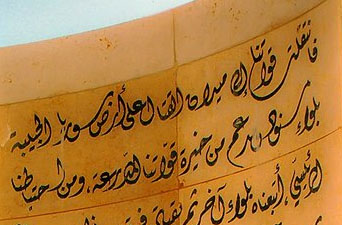 فانتقلت قواتنا إلى ميدان القتال على أرض سوريا الحبيبة
بلواء من خيرة قواتنا المدرعة، ومن احتياطنا
الرئيسي، أتبعناه بلواء آخر ثم بقيادة